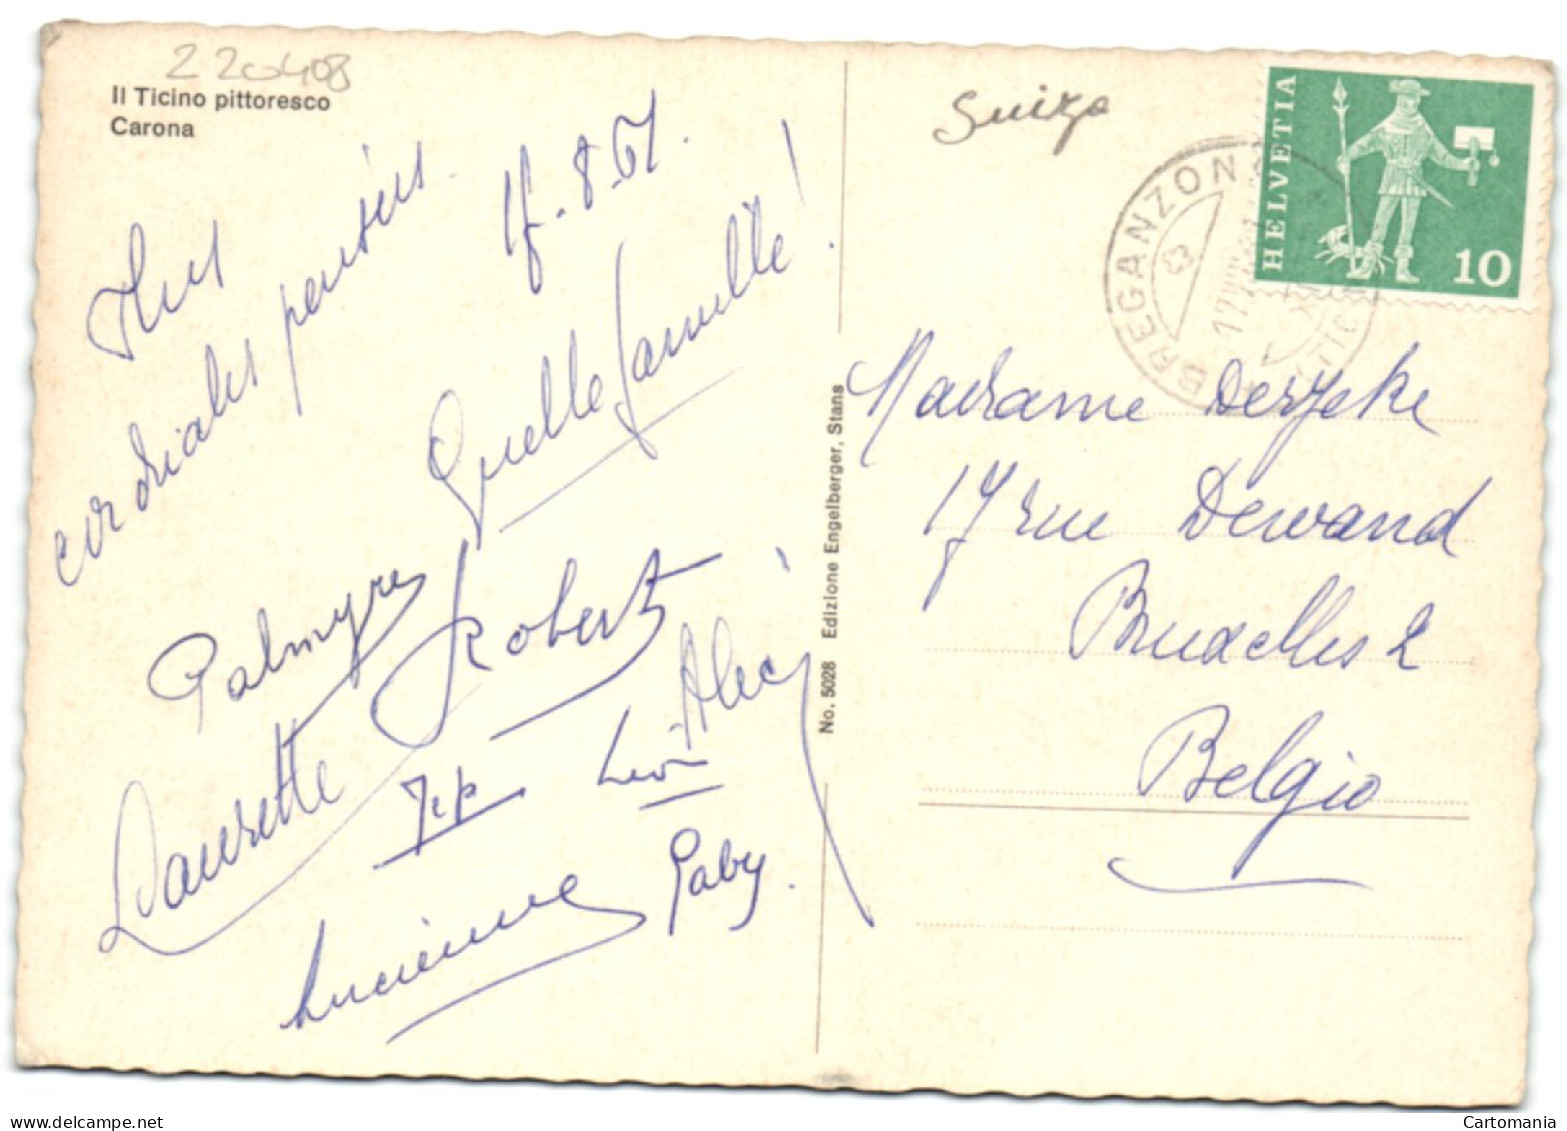 220408
Il Ticino pittoresco
Carona
17-8-61.
Nos
cordiales pensées
Quelle famille!
Palmyre
Robert
Alec
Laurette
Jep
Léon
Lucienne
Gaby.
No. 5028 Edizione Engelberger, Stans
Suiza
BREGANZONA
HELVETIA
10
Madame Derycke
17 rue Dewand
Bruxelles 2
Belgio
delcampe.net
Cartomania